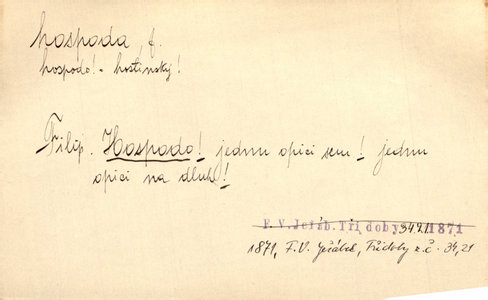 hospoda, f.
hospodo! - hostinský!
Filip. Hospodo! jednu opici sem! jednu
opici na dluh!
F. V. Jeřáb. Tři doby 34 1871
1871, F. V. Jeřábek, Tři doby z. č. - 34, 21